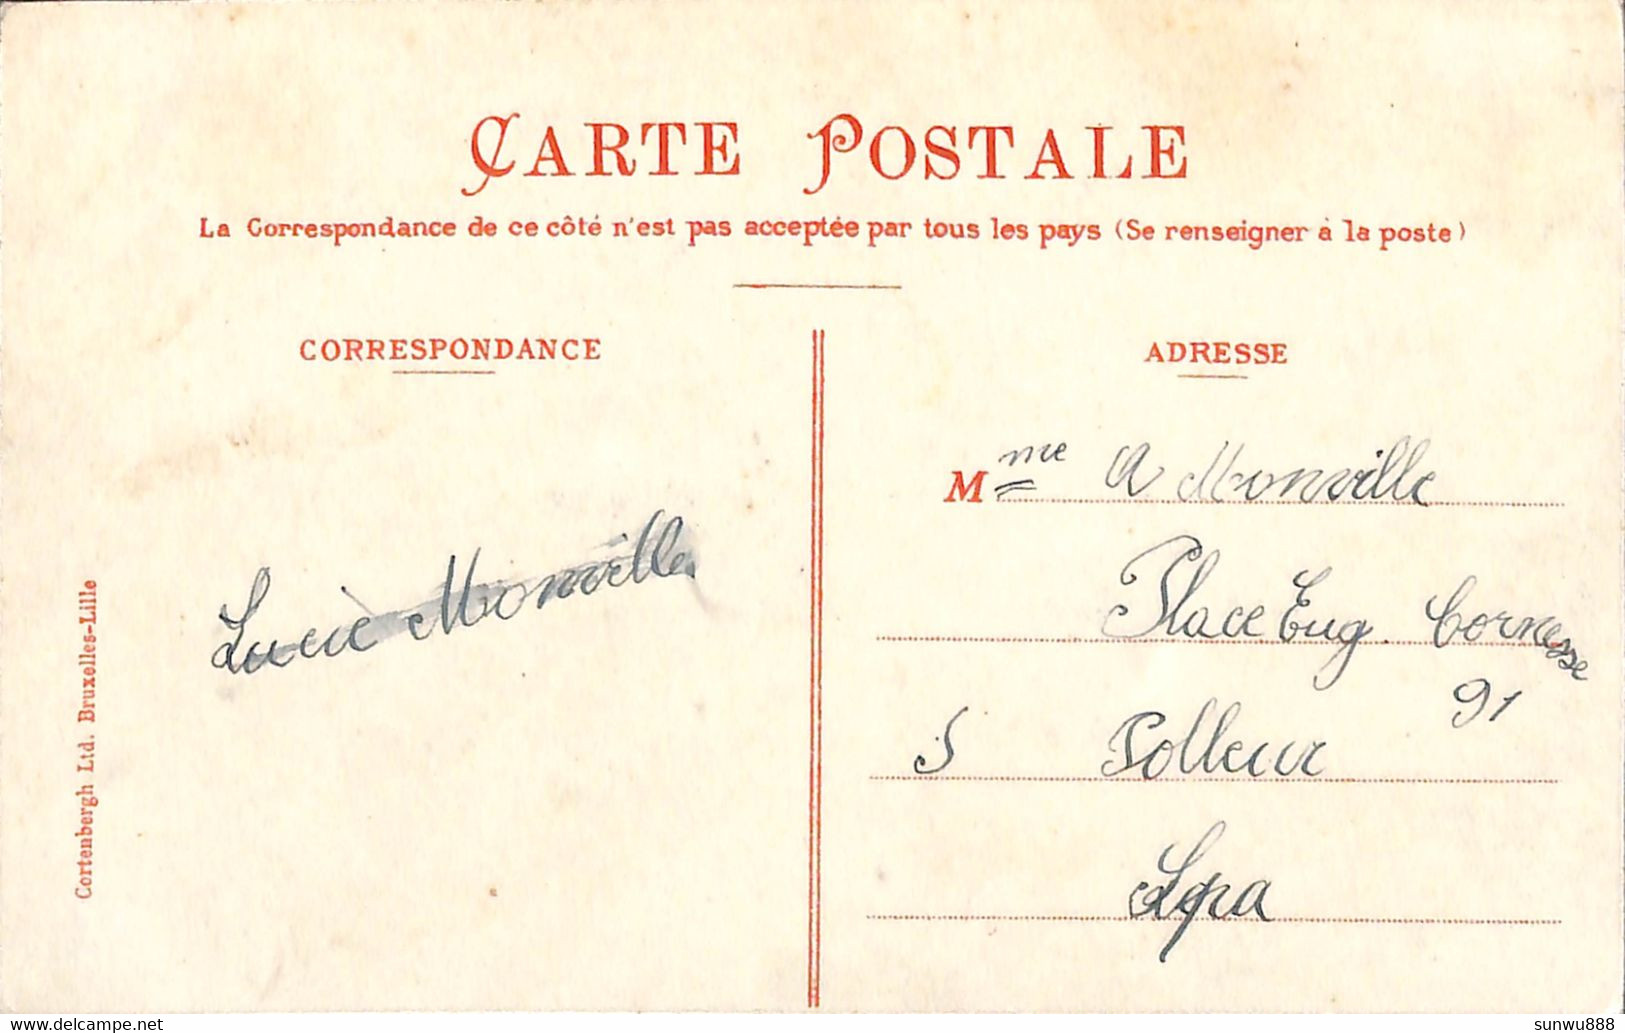 CARTE POSTALE
La Correspondance de ce côté n'est pas acceptée par tous les pays (Se renseigner à la poste)
CORRESPONDANCE
Lucie Monville
Cortenbergh Ltd. Bruxelles-Lille
ADRESSE
Mme A Monville
Place Eug. Cornesse
91
Polleur
Spa
www.delcampe.net
sunwu888